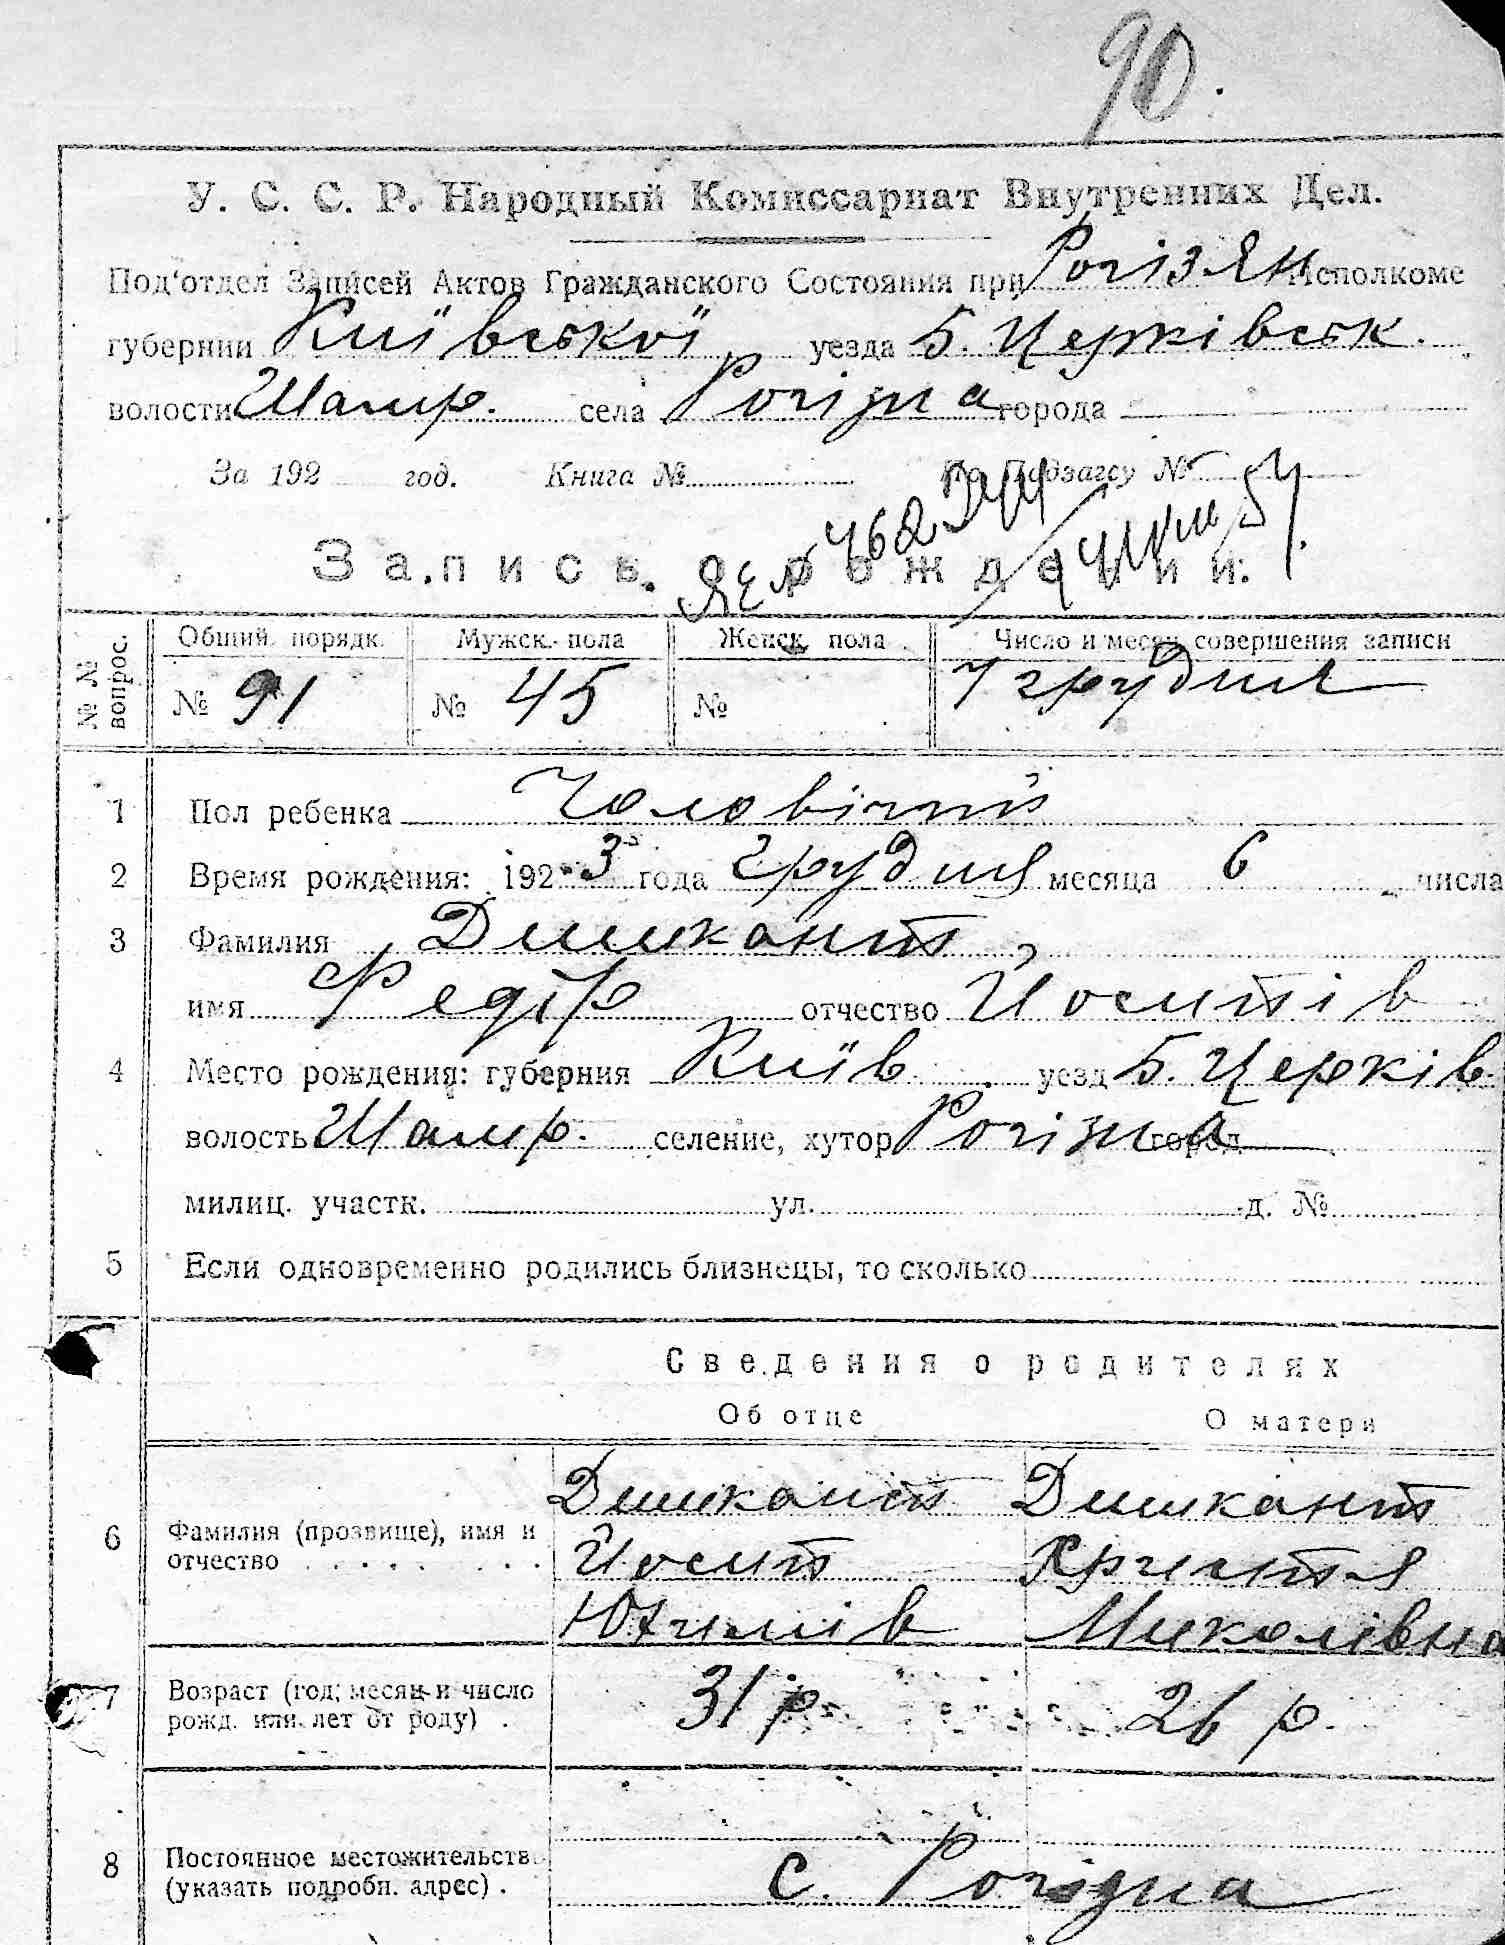 90.
У. С. С. Р. Народный Комиссариат Внутренних Дел.
Под'отдел Записей Актов Гражданского Состояния при Рогізян Исполкоме
губернии Київської уезда Б. Церківськ.
волости Шамр. села Рогізна города
За 192 год. Книга № По Подзагсу №
Запись о рождении.
№ № вопрос.
Общий порядк. Мужск. пола Женск. пола Число и месяц совершения записи
№ 91 № 45 № 7 грудня
1 Пол ребенка Чоловічий
2 Время рождения: 192 3 года Грудня месяца 6 числа
3 Фамилия Дишкант
имя Федір отчество Йосипів
4 Место рождения: губерния Київ уезд Б. Церків.
волость Шамр. селение, хутор Рогізна город
милиц. участк. ул. д. №
5 Если одновременно родились близнецы, то сколько
Сведения о родителях
Об отце О матери
6 Фамилия (прозвище), имя и отчество
Дишкант Дишкант
Йосип Христя
Юхимів Миколівна
7 Возраст (год, месяц и число рожд. или лет от роду) . 31 р. 26 р.
8 Постоянное местожительств (указать подробн. адрес) . с. Рогізна